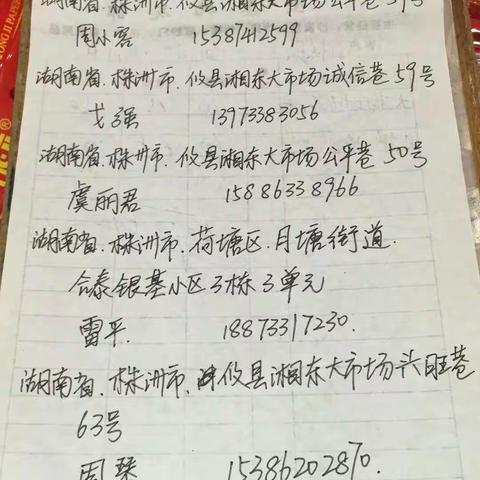 湖南省.株洲市.攸县湘东大市场公平巷59号
周小客 15387412599
湖南省.株洲市.攸县湘东大市场诚信巷59号
戈强 13973383056
湖南省.株洲市.攸县湘东大市场公平巷50号
虞丽君 15886338966
湖南省.株洲市.荷塘区.月塘街道.
合泰银基小区3栋3单元
雷平. 18873317230.
湖南省.株洲市.攸县湘东大市场兴旺巷
63号
周琹 15386202870.